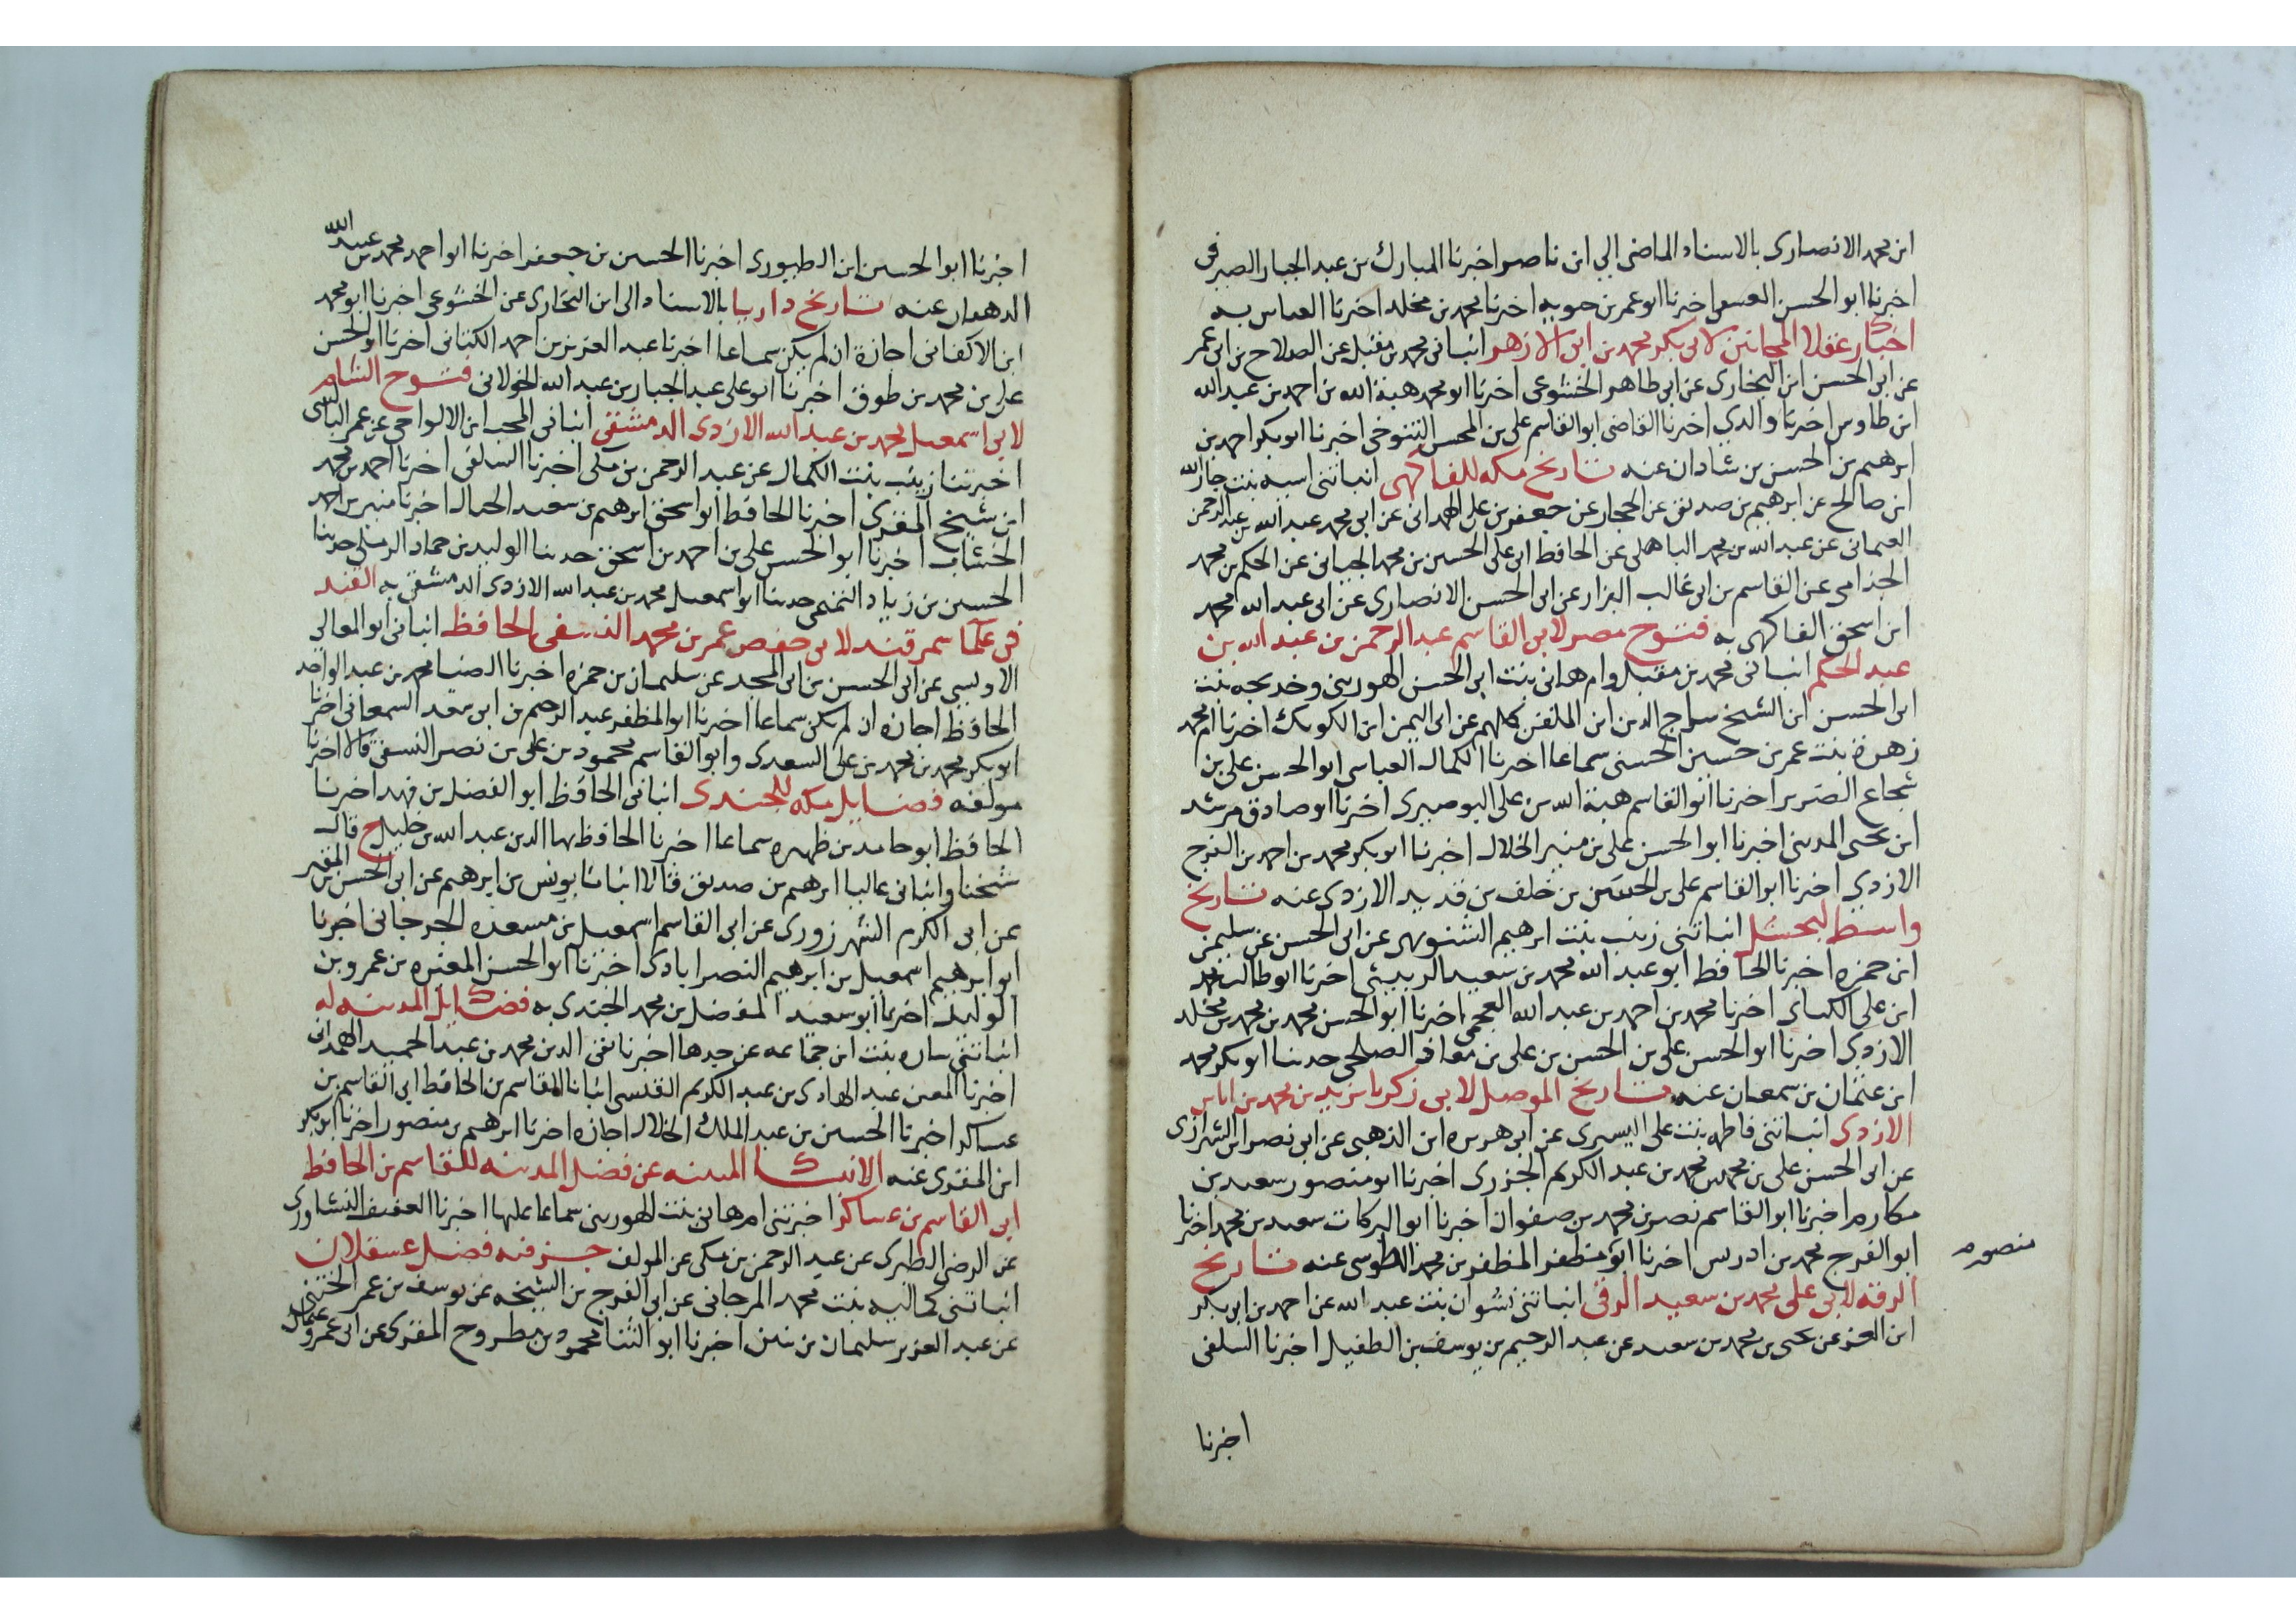 ابن محمد الانصارى بالاسناد الماضى الى ابن ناصر اخبرنا المبارك بن عبد الجبار الصيرفى
اخبرنا ابو الحسن اخبرنا ابو عمر بن حيويه اخبرنا محمد بن مخلد اخبرنا العباس به
اخبار عقلا المجانين لابى بكر محمد بن ابى الازهر انبانى محمد بن مقبل عن الصلاح بن ابى عمر
عن ابى الحسن ابن البخارى عن ابى طاهر الخشوعى اخبرنا ابو محمد هبة الله بن احمد بن عبد الله
ابن طاوس اخبرنا والدى اخبرنا القاضى ابو القاسم على بن المحسن التنوخى اخبرنا ابو بكر احمد بن
ابرهيم بن الحسن بن شاذان عنه تاريخ مكه للفاكهى انباتنى اسيه بنت جار الله
ابن صالح عن ابرهيم بن صديق عن الحجار عن جعفر بن على الهمدانى عن ابى محمد عبد الله بن عبد الرحمن
العثمانى عن عبد الله بن محمد الباهلى عن الحافظ ابى على الحسين بن محمد الجيانى عن الحكم بن محمد
الجذامى عن القاسم بن ابى غالب البزار عن ابى الحسن الانصارى عن ابى عبد الله محمد
ابن اسحق الفاكهى به فتوح مصر لابى القاسم عبد الرحمن بن عبد الله بن
عبد الحكم انبانى محمد بن مقبل وام هانى بنت ابى الحسن الهورينى وخديجه بنت
ابى الحسن ابن الشيخ سراج الدين ابن الملقن كلهم عن ابى اليمن ابن الكويك اخبرنا ام محمد
زهرة بنت عمر بن حسين الحسنى سماعا اخبرنا الكمال العباسى ابو الحسن على بن
شجاع الضرير اخبرنا ابو القاسم هبة الله بن على البوصيرى اخبرنا ابو صادق مرشد
ابن يحيى المدينى اخبرنا ابو الحسن على بن منير الخلال اخبرنا ابو بكر محمد بن احمد بن الفرج
الازدى اخبرنا ابو القاسم على بن الحسين بن خلف بن قديد الازدى عنه تاريخ
واسط لبحشل انباتنى زينب بنت ابرهيم الشنويهى عن ابى الحسن عن سليمن
ابن حمزه اخبرنا الحافظ ابو عبد الله محمد بن سعيد الدبيثى اخبرنا ابو طالب محمد
ابن على الكتانى اخبرنا محمد بن احمد بن عبد الله العجمى اخبرنا ابو الحسن محمد بن محمد بن مخلد
الازدى اخبرنا ابو الحسن على بن الحسن بن على بن معاذ الصلحى حدثنا ابو بكر محمد
ابن عثمان بن سمعان عنه تاريخ الموصل لابى زكريا يزيد بن محمد بن اياس
الازدى انباتنى فاطمه بنت على اليسيرى عن ابى هريره ابن الذهبى عن ابى نصر ابن الشيرازى
عن ابى الحسن على بن محمد بن محمد بن عبد الكريم الجزرى اخبرنا ابو منصور سعيد بن
مكارم اخبرنا ابو القاسم نصر بن محمد بن صفوان اخبرنا ابو البركات سعيد بن محمد اخبرنا
ابو الفرج محمد بن ادريس اخبرنا ابو منظفر المظفر بن محمد الطوسى عنه تاريخ
منصور
الرقه لابى على محمد بن سعيد الرقى انباتنى نشوان بنت عبد الله عن احمد بن ابى بكر
ابن العز عن يحيى بن محمد بن سعيد عن عبد الرحيم بن يوسف بن الطفيل اخبرنا السلفى
اخبرنا
اخبرنا ابو الحسين ابن الطيورى اخبرنا الحسين بن جعفر اخبرنا ابو احمد محمد بن عبيد الله
الدهان عنه تاريخ داريا بالاسناد الى ابن البخارى عن الخشوعى اخبرنا ابو محمد
ابن الاكفانى اجازة ان لم يكن سماعا اخبرنا عبد العزيز بن احمد الكتانى اخبرنا ابو الحسن
على بن محمد بن طوق اخبرنا ابو على عبد الجبار بن عبد الله الخولانى فتوح الشام
لابى اسمعيل محمد بن عبد الله الازدى الدمشقى انبانى المحب ابن الالواحى عن عمر البالسى
اخبرتنا زينب بنت الكمال عن عبد الرحمن بن مكى اخبرنا السلفى اخبرنا احمد بن محمد
ابن شيخ المقرى اخبرنا الحافظ ابو اسحق ابرهيم بن سعيد الحبال اخبرنا منير بن احمد
الخشاب اخبرنا ابو الحسن على بن احمد بن اسحق حدثنا الوليد بن حماد الرملى حدثنا
الحسين بن زياد حدثنا ابو اسمعيل محمد بن عبد الله الازدى الدمشقى به القند
فى علما سمرقند لابى حفص عمر بن محمد النسفى الحافظ انبانى ابو المعالى
الاوليسى عن ابى الحسن بن ابى المجد عن سليمان بن حمزه اخبرنا الضيا محمد بن عبد الواحد
الحافظ اجازه ان لم يكن سماعا اخبرنا ابو المظفر عبد الرحيم بن ابى سعد السمعانى اخبرنا
ابو بكر محمد بن محمد بن على السعدى وابو القاسم محمود بن على بن نصر النسفى قالا اخبرنا
مولفه فضايل مكه للجندى انبانى الحافظ ابو الفضل بن فهد اخبرنا
الحافظ ابو حامد بن ظهيره سماعا اخبرنا الحافظ بها الدين عبد الله بن خليل ح قال
شيخنا وانبانى عاليا ابرهيم بن صديق قالا انبانا يونس بن ابرهيم عن ابى الحسن بن المقير
عن ابى الكرم الشهرزورى عن ابى القاسم اسمعيل بن مسعده الجرجانى اخبرنا
ابو ابرهيم اسمعيل بن ابرهيم النصراباذى اخبرنا ابو الحسن المغيره بن عمرو بن
الوليد اخبرنا ابو سعيد المفضل بن محمد الجندى به فضايل المدينه له
انباتنى ساره بنت ابن جماعه عن جدها اخبرنا تقى الدين محمد بن عبد الحميد الهمدانى
اخبرنا المعين عبد الهادى بن عبد الكريم القيسى انبانا القاسم بن الحافظ ابى القاسم بن
عساكر اخبرنا الحسين بن عبد الملك الخلال اجازه اخبرنا ابرهيم بن منصور اخبرنا ابو بكر
ابن المقرى عنه الانبا المبينه عن فضل المدينه للقاسم بن الحافظ
ابى القاسم بن عساكر اخبرتنى ام هانى بنت الهورينى سماعا عليها اخبرنا العفيف النشاورى
عن الرضى الطبرى عن عبد الرحمن بن مكى عن المولف جزء فيه فضل عسقلان
انباتنى كماليه بنت محمد المرجانى عن ابى الفرج بن الشيخه عن يوسف بن عمر الختنى
عن عبد العزيز سليمان بن بنين اخبرنا ابو الثنا محمود بن مطروح المقرى عن ابى عمرو عثمان